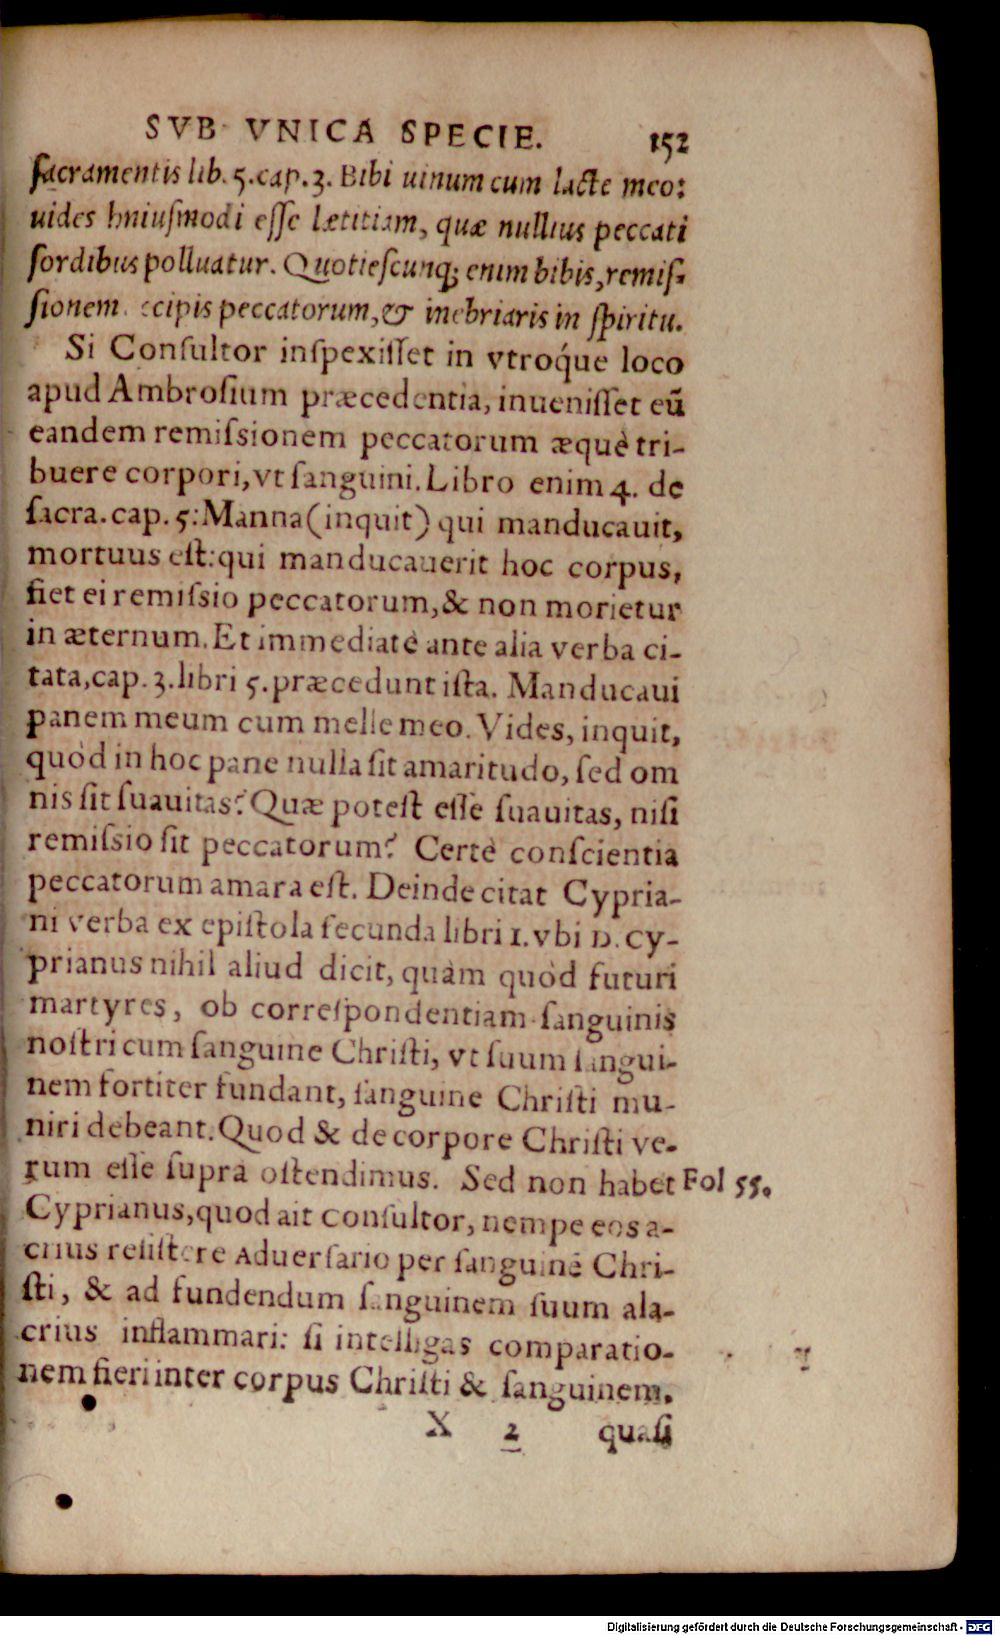 SVB VNICA SPECIE. 152
ſacramentis lib. 5. cap. 3. Bibi uinum cum lacte meo:
uides huiuſmodi eſſe lætitiam, quæ nullius peccati
ſordibus polluatur. Quotieſcunq; enim bibis, remiſ-
ſionem ccipis peccatorum, & inebriaris in ſpiritu.
Si Conſultor inſpexiſſet in vtroq́ue loco
apud Ambroſium præcedentia, inueniſſet eũ
eandem remiſsionem peccatorum æquè tri-
buere corpori, vt ſanguini. Libro enim 4. de
ſacra. cap. 5: Manna (inquit) qui manducauit,
mortuus eſt: qui manducauerit hoc corpus,
fiet ei remiſsio peccatorum, & non morietur
in æternum. Et immediatè ante alia verba ci-
tata, cap. 3. libri 5. præcedunt iſta. Manducaui
panem meum cum melle meo. Vides, inquit,
quòd in hoc pane nulla ſit amaritudo, ſed om
nis ſit ſuauitas? Quæ poteſt eſſe ſuauitas, niſi
remiſsio ſit peccatorum? Certè conſcientia
peccatorum amara eſt. Deinde citat Cypria-
ni verba ex epiſtola ſecunda libri 1. vbi D. Cy-
prianus nihil aliud dicit, quàm quòd futuri
martyres, ob correſpondentiam ſanguinis
noſtri cum ſanguine Chriſti, vt ſuum ſangui-
nem fortiter fundant, ſanguine Chriſti mu-
niri debeant. Quod & de corpore Chriſti ve-
rum eſſe ſuprà oſtendimus. Sed non habet Fol 55.
Cyprianus, quod ait Conſultor, nempe eos a-
crius reſiſtere Aduerſario per ſanguinẽ Chri-
ſti, & ad fundendum ſanguinem ſuum ala-
crius inflammari: ſi intelligas comparatio-
nem fieri inter corpus Chriſti & ſanguinem,
X 2 quaſi
Digitalisierung gefördert durch die Deutsche Forschungsgemeinschaft - DFG